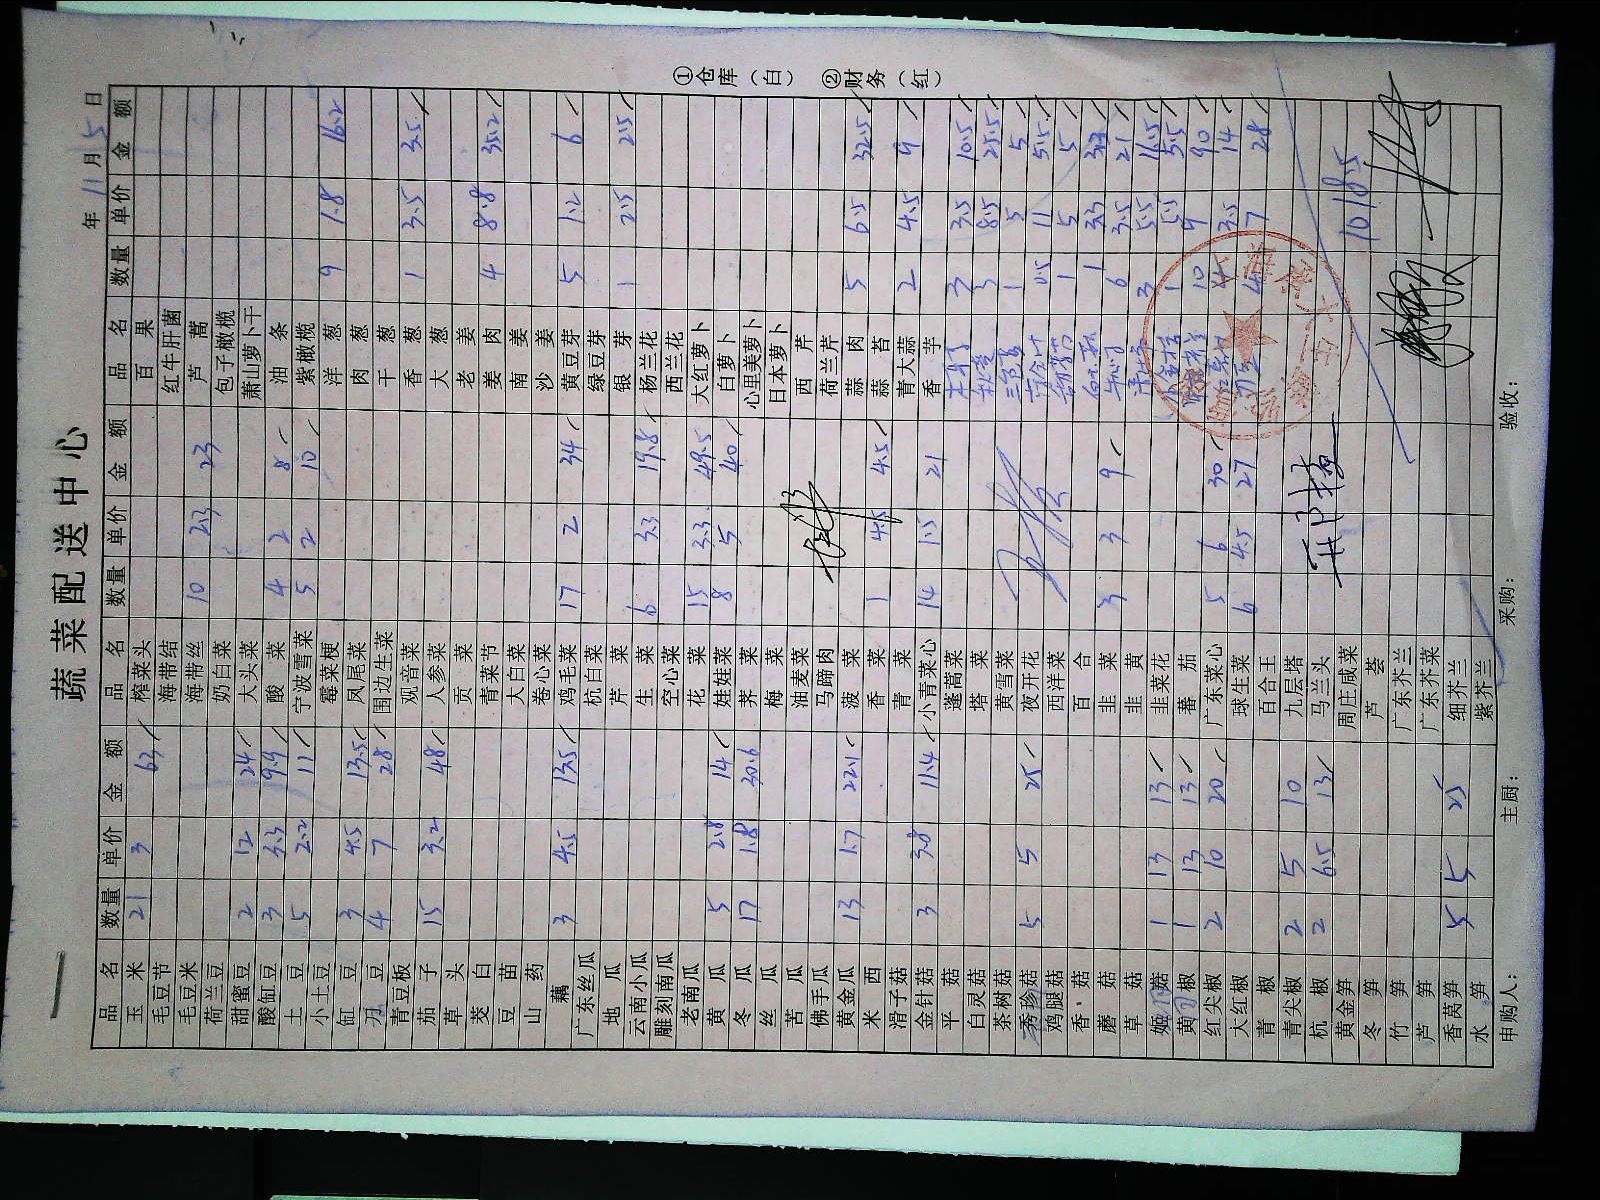 蔬菜配送中心
年 11月 5日
品名 数量 单价 金额 品名 数量 单价 金额 品名 数量 单价 金额
玉米 21 3 63 榨菜头 百果
毛豆节 海带结 红牛肝菌
毛豆米 海带丝 10 2.3 23 芦蒿
荷兰豆 奶白菜 包子橄榄
甜蜜豆 2 12 24 大头菜 萧山萝卜干
酸缸豆 3 3.3 9.9 酸菜 4 2 8 油条
土豆 5 2.2 11 宁波雪菜 5 2 10 紫橄榄
小土豆 霉菜梗 洋葱 9 1.8 16.2
缸豆 3 4.5 13.5 凤尾菜 肉葱
刀豆 4 7 28 围边生菜 干葱
青豆板 观音菜 香葱 1 3.5 3.5
茄子 15 3.2 48 人参菜 大葱
草头 贡菜 老姜
茭白 青菜节 姜肉 4 8.8 35.2
豆苗 大白菜 南姜
山药 卷心菜 沙姜
藕 3 4.5 13.5 鸡毛菜 17 2 34 黄豆芽 5 1.2 6
广东丝瓜 杭白菜 绿豆芽
地瓜 芹菜 银芽 1 2.5 2.5
云南小瓜 生菜 6 3.3 19.8 杨兰花
雕刻南瓜 空心菜 西兰花
老南瓜 花菜 15 3.3 49.5 大红萝卜
黄瓜 5 2.8 14 娃娃菜 8 5 40 白萝卜
冬瓜 17 1.8 30.6 荠菜 心里美萝卜
丝瓜 梅菜 日本萝卜
苦瓜 油麦菜 西芹
佛手瓜 马蹄肉 荷兰芹
黄金瓜 13 1.7 22.1 菠菜 蒜肉 5 6.5 32.5
米西 香菜 1 4.5 4.5 蒜苔
滑子菇 青菜 青大蒜 2 4.5 9
金针菇 3 3.8 11.4 小青菜心 14 1.5 21 香芋
平菇 蓬蒿菜 3 3.5 10.5
白灵菇 塔菜 3 8.5 25.5
茶树菇 黄雪菜 1 5 5
秀珍菇 5 5 25 夜开花 0.5 11 5.5
鸡腿菇 西洋菜 1 5 5
香菇 百合 1 3.3 3.3
蘑菇 韭菜 3 3 9 6 3.5 21
草菇 韭黄 3 5.5 16.5
姬菇 1 13 13 韭菜花 1 5.5 5.5
黄椒 1 13 13 蕃茄 10 9 90
红尖椒 2 10 20 广东菜心 5 6 30 4 3.5 14
大红椒 球生菜 6 4.5 27 4 7 28
青椒 百合王
青尖椒 2 5 10 九层塔
杭椒 2 6.5 13 马兰头
黄金笋 周庄咸菜 1018.5
冬笋 芦荟
竹笋 广东芥兰
芦笋 广东芥菜
香莴笋 5 5 25 细芥兰
水笋 紫芥兰
申购人: 主厨: 采购: 验收:
①仓库(白) ②财务(红)